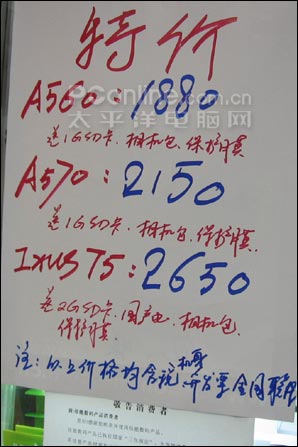 特价
A560:1880
Pconline.com.cn
太平洋电脑网
送1GSD卡、相机包、保护膜
A570:2150
送1GSD卡、相机包、保护膜
Ixus75:2650
送2GSD卡、国产电、相机包、
保护膜
注:以上价格均含税 机身
敬告消费者